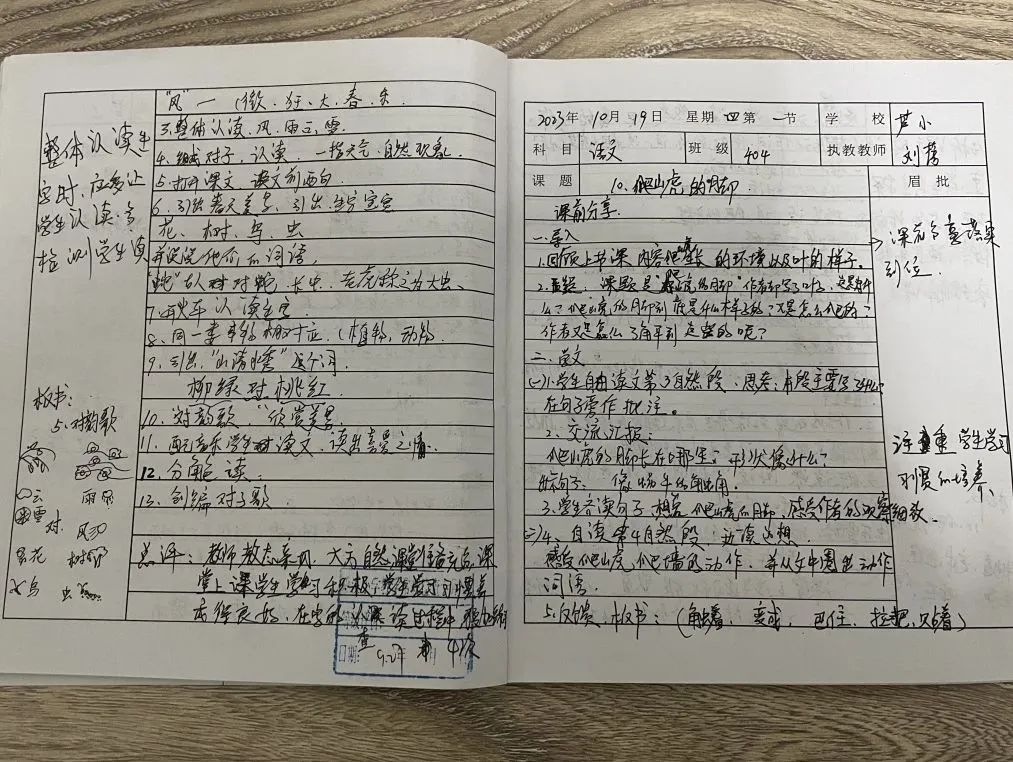 "风"一(微、狂、大、春、东
3.整体认读,风、雨、云、雪。
4.组成对子,认读。一指天气 自然现象
5.打开课文 读文前两句
6.引出春天美景,引出生字宝宝
花、树、鸟、虫
并说说他们的词语,
"蛇"古人 长虫,老虎称之为大虫。
7.开火车认读生字
8.同一类事物相对应。(植物,动物
9.引出"山清水秀"这个词
柳绿对桃红
10.对韵歌,欣赏美景
11.配音乐学生读文,读出喜爱之情。
12.分角色读
13.创编对子歌
总评:教师教态亲切、大方自然,课堂
堂上课学生学习积极,学生学习习惯
整体认读生
字时,应多让
学生认读,多
检测学生读
板书:
5.对韵歌
云 雨
雪 对 风
花 树
鸟 虫
查 第 4 次
日期: 9.27
2023年 10月 19日 星期 四 第 一 节 学 校 芦小
科 目 语文 班 级 404 执教教师 刘
课 题 10.爬山虎的脚 眉 批
课前分享
一、导入
1.回顾上节课内容爬山虎生长的环境以及叶的样子。
2.直接,课题是爬山虎的脚,作者却写了叶子,这是为什
么?爬山虎的脚到底是什么样子的?又是怎么爬的?
作者又是怎么了解到这些的呢?
二、学文
(一)1.学生自由读文第3自然段,思考:本段主要写了什么
在句子旁作批注。
2.交流汇报:
爬山虎的脚长在哪里?形状像什么?
找句子:像蜗牛的触角。
3.学生齐读句子 想象爬山虎的脚,感受作者的观察细致。
(二)4、自读第4自然段 边读边想
感受爬山虎爬墙的动作,并从文中圈出动作
词语。
5.反馈,板书:(触着、变成、巴住、拉 、贴着)
课前分享落实
到位
注重学生学习
习惯的培养